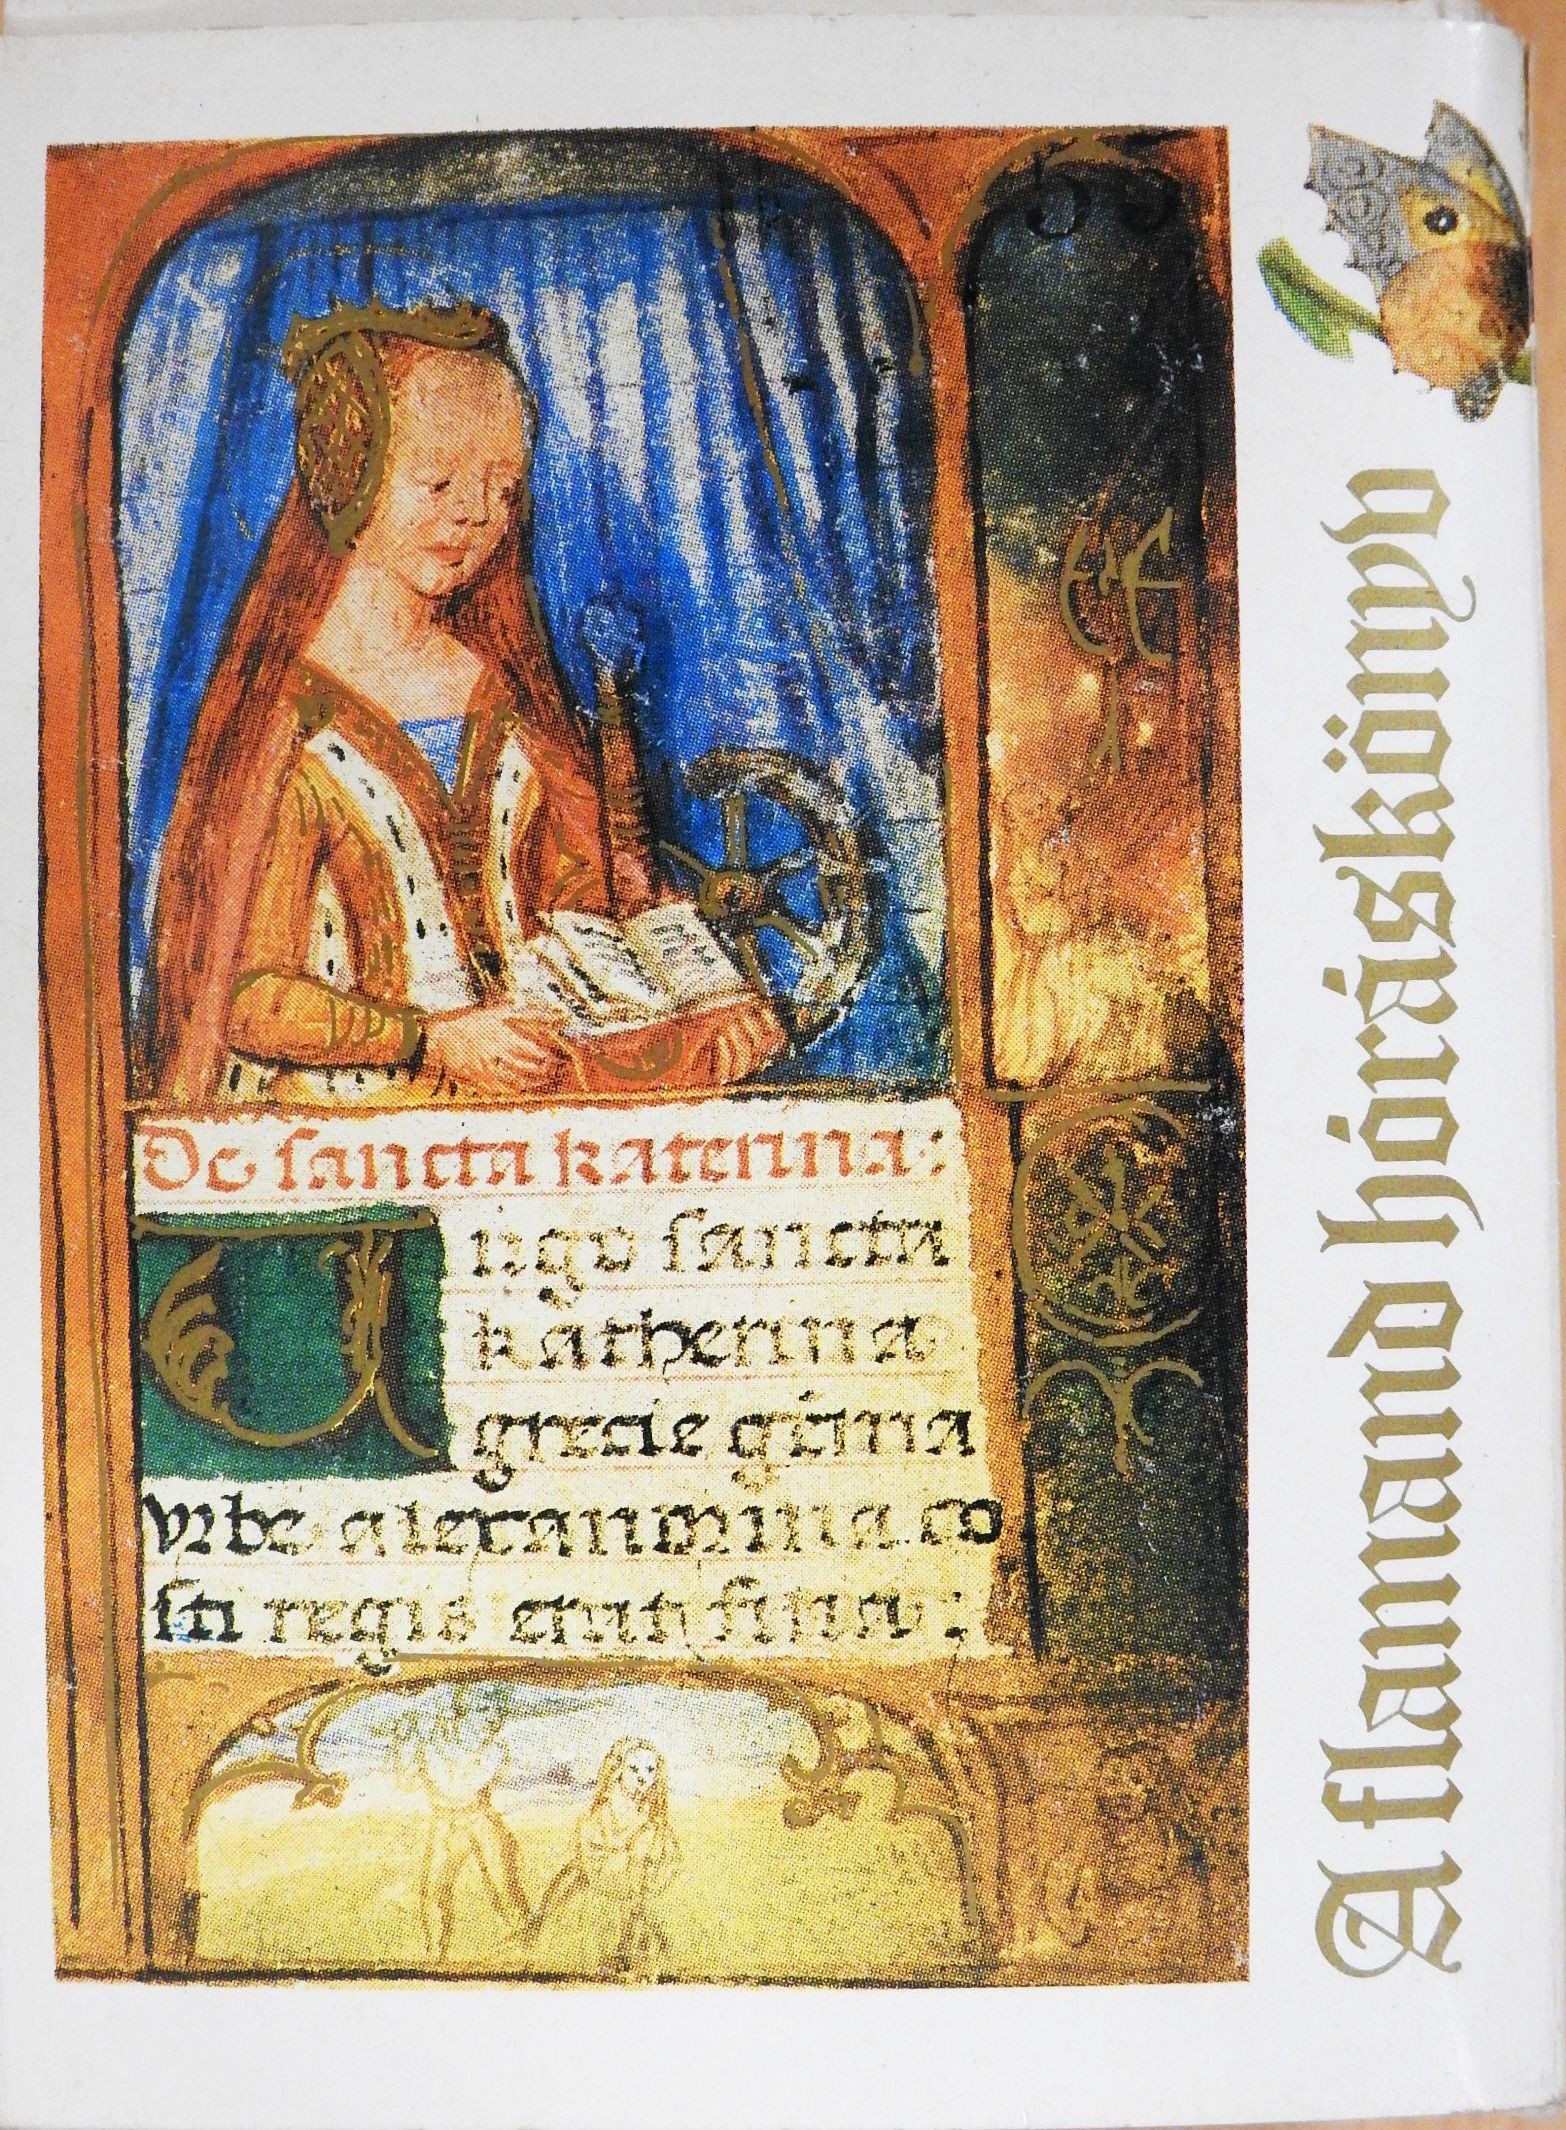 59
De sancta katerina :
Uirgo sancta
katherina
grecie gẽma
vrbe alexandrina co
sti regis erat filia :
A flamand hóráskönyv